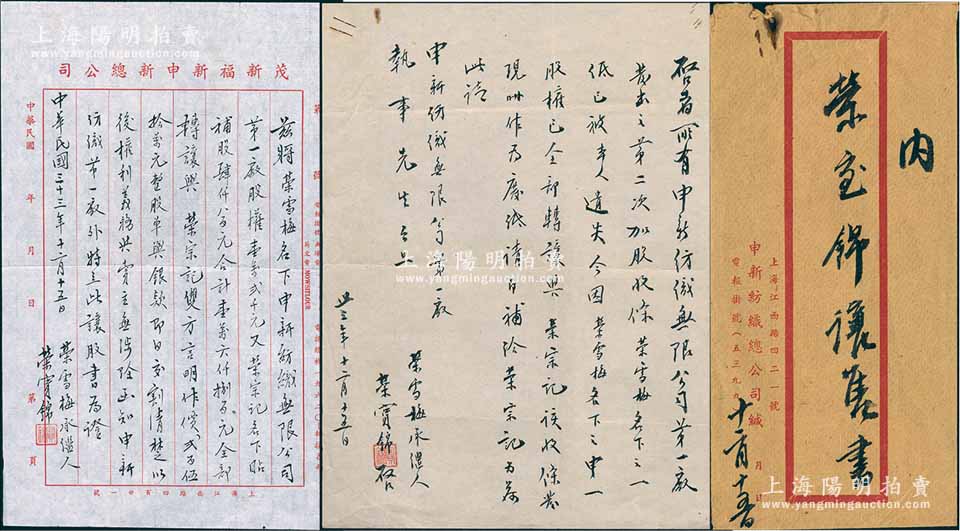 上海陽明拍賣
www.yangmingauction.com
茂新福新申新總公司
茲將榮雪梅名下申新紡織無限公司
第一廠股權壹萬弍千元又榮宗記名下貼
補股肆仟八百元合計壹萬六仟捌百元全部
轉讓與 榮宗記雙方言明作價弍百伍
拾萬元整股單與銀款即日交割清楚以
後權利義務與賣主無涉除函知申新
紡織第一廠外特立此讓股書為證
榮雪梅承繼人
榮寶錦
中華民國三十三年十二月十五日
中華民國 年 月 日 第 頁
上海江西路四百廿一號
啓者所有申新紡織無限公司第一廠
發出之第二次加股收條 榮雪梅名下之一
紙已被本人遺失今因 榮雪梅名下之申一
股權已全部轉讓與 榮宗記該收條當
現州作為廢紙請自補給榮宗記為荷
此請
申新紡織無限公司第一廠
執事先生台照
榮雪梅承繼人
榮寶錦啓
卅三年十二月十五日
內
榮寶錦讓售書
上海江西路四二一號
申新紡織總公司緘
電報掛號(五三九九)
月 日
十二月十五日
上海陽明拍賣
www.yangmingauction.com